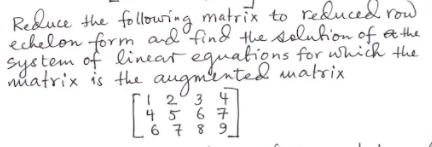 Reduce the following matrix to reduced row
echelon form and find the solution of the
system of linear equations for which the
matrix is the augmented matrix
1 2 3 4
4 5 6 7
6 7 8 9